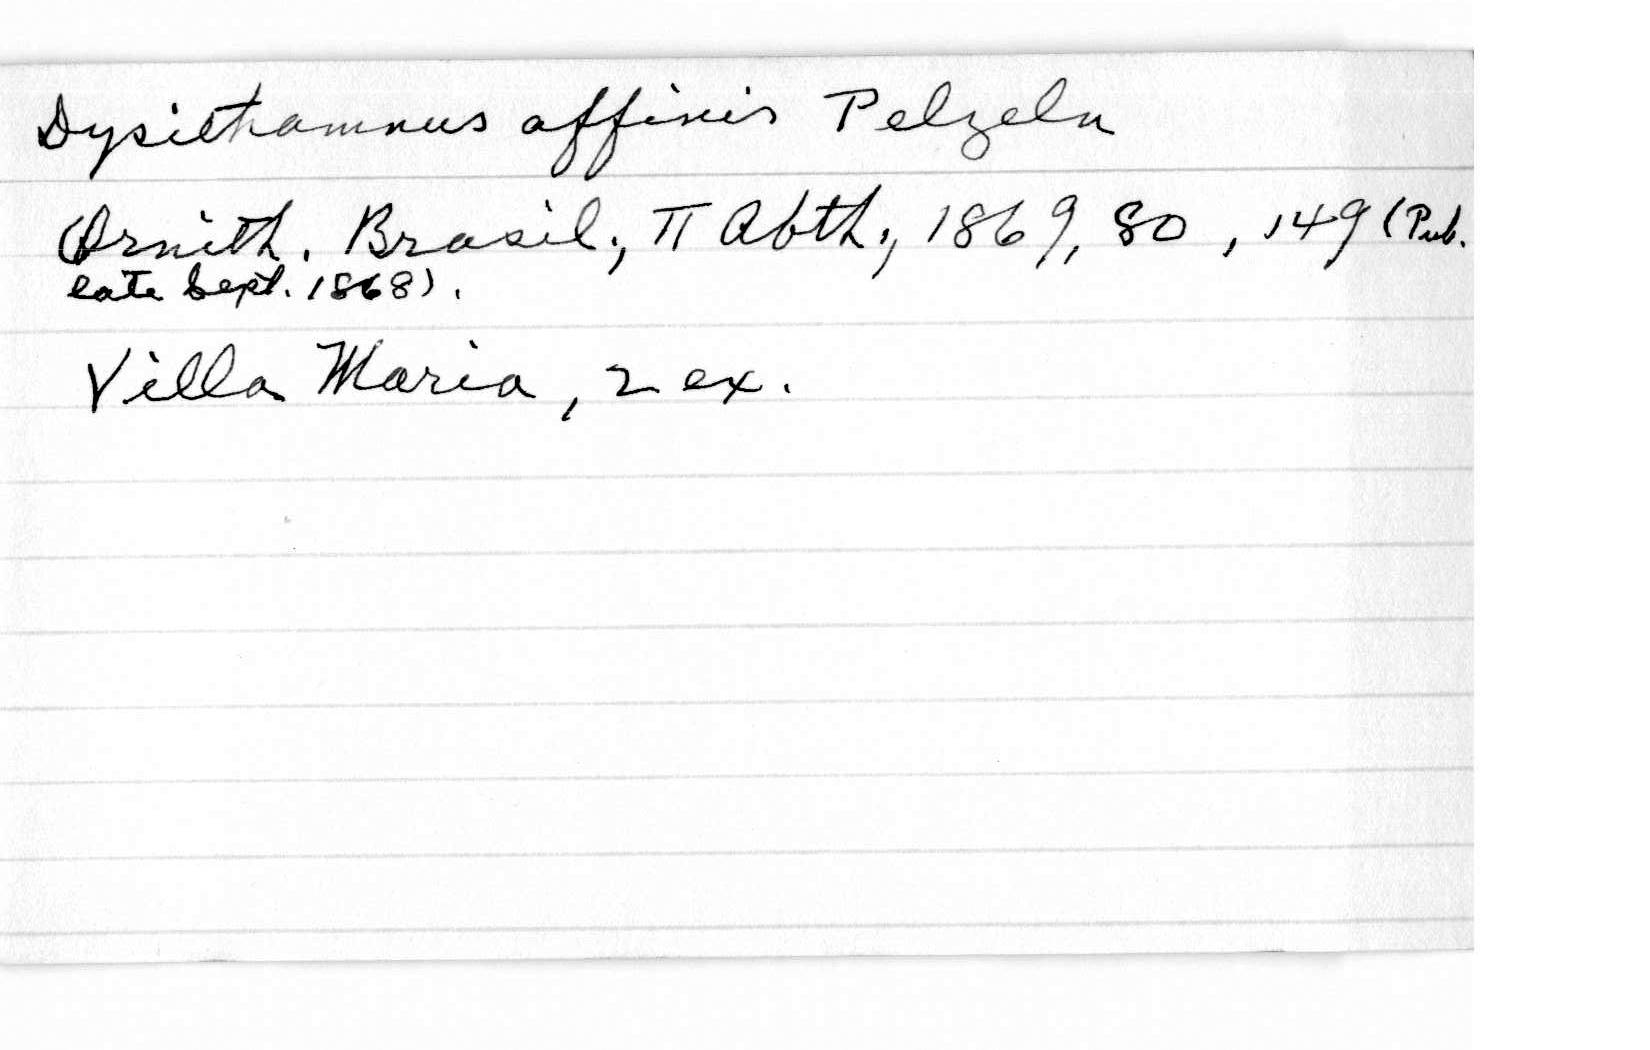 Dysithamnus affinis Pelzeln
Ornith. Brasil., II Abth., 1869, 80, 149 (Pub.
late Sept. 1868).
Villa Maria, 2 ex.